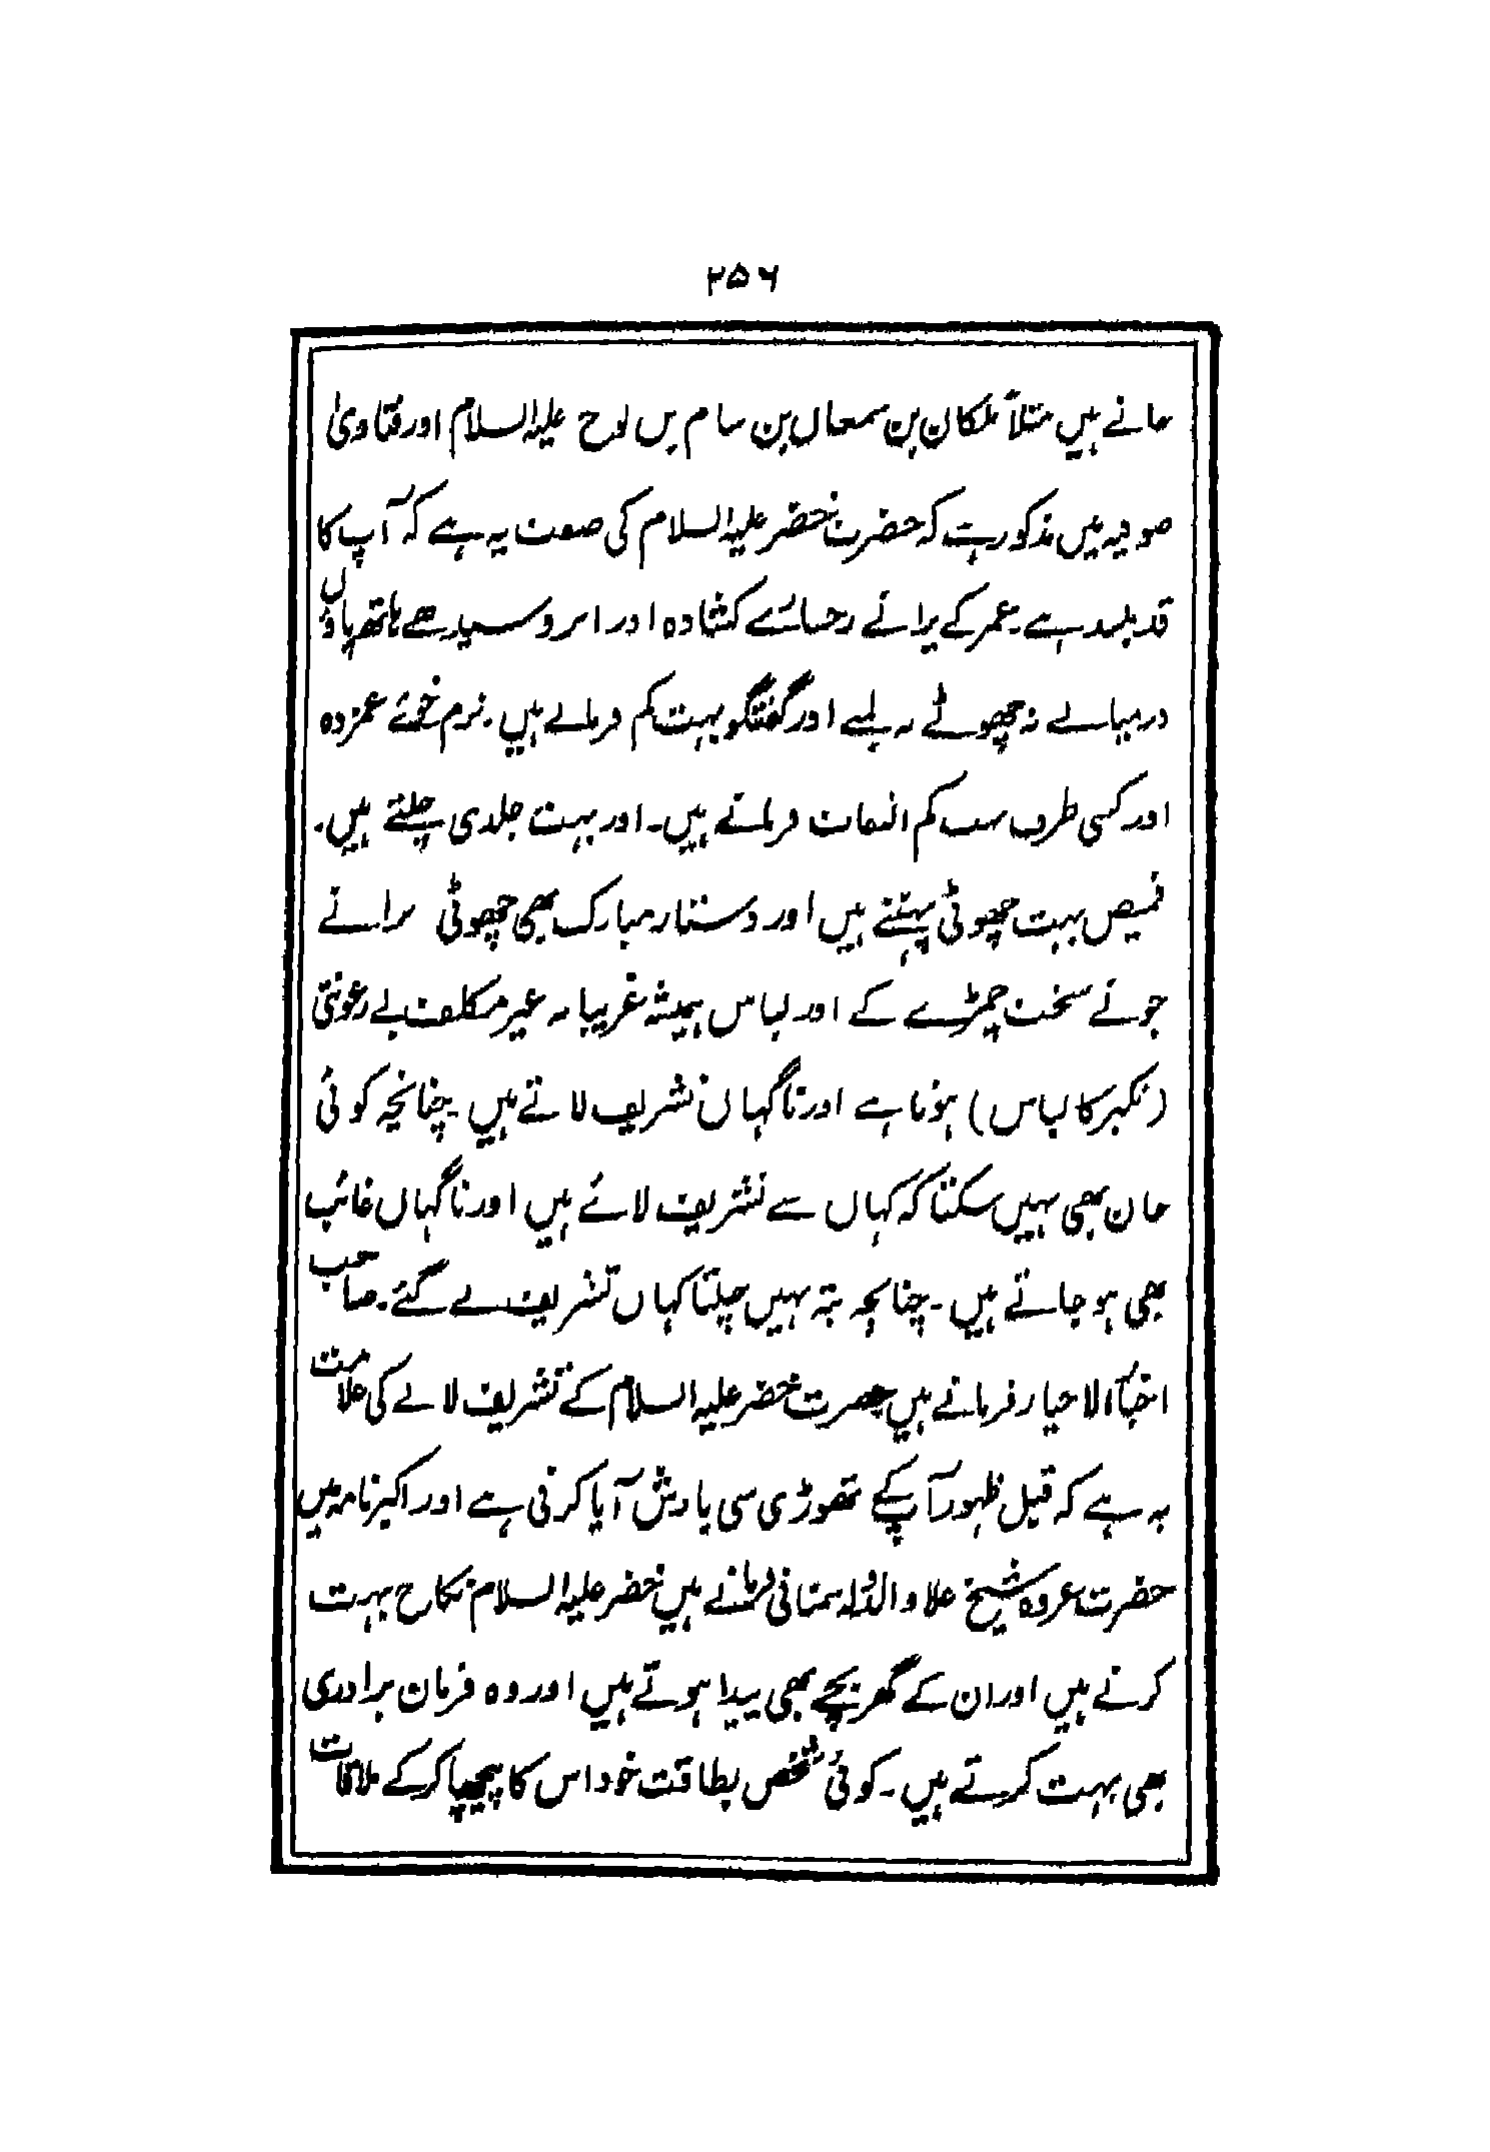 ۲۵۶
جاتے ہیں مثلاً ملکان بن سمعان بن سام بن نوح علیہ السلام اور فتاویٰ
صوفیہ میں مذکور ہے کہ حضرت خضر علیہ السلام کی صفت یہ ہے کہ آپ کا
قد بلند ہے۔ عمر کے پرانے رخسارے کشادہ اور ابرو سیدھے ہاتھ پاؤں
درمیانے نہ چھوٹے نہ لمبے اور گفتگو بہت کم فرماتے ہیں۔ نرم خوئے غمزدہ
اور کسی طرف بہت کم التفات فرماتے ہیں۔ اور بہت جلدی چلتے ہیں۔
قمیص بہت چھوٹی پہنتے ہیں اور دستار مبارک بھی چھوٹی پرانے
جوتے سخت چمڑے کے اور لباس ہمیشہ غریبانہ غیر مکلف بے رعونتی
(تکبر کا لباس) ہوتا ہے اور ناگہاں تشریف لاتے ہیں۔ چنانچہ کوئی
جان بھی نہیں سکتا کہ کہاں سے تشریف لائے ہیں اور ناگہاں غائب
بھی ہو جاتے ہیں۔ چنانچہ پتہ نہیں چلتا کہاں تشریف لے گئے۔ صاحب
اخبار الاخیار فرماتے ہیں حضرت خضر علیہ السلام کے تشریف لانے کی علامت
یہ ہے کہ قبل ظہور آپ کے تھوڑی سی بارش آیا کرتی ہے اور اکبر نامہ میں
حضرت عروہ شیخ علاو الدولہ سمنانی فرماتے ہیں خضر علیہ السلام نکاح بہت
کرتے ہیں اور ان کے گھر بچے بھی پیدا ہوتے ہیں اور وہ فرمان برادری
بھی بہت کرتے ہیں۔ کوئی شخص بطاقت خود اس کا پیچھا کر کے ملاقات